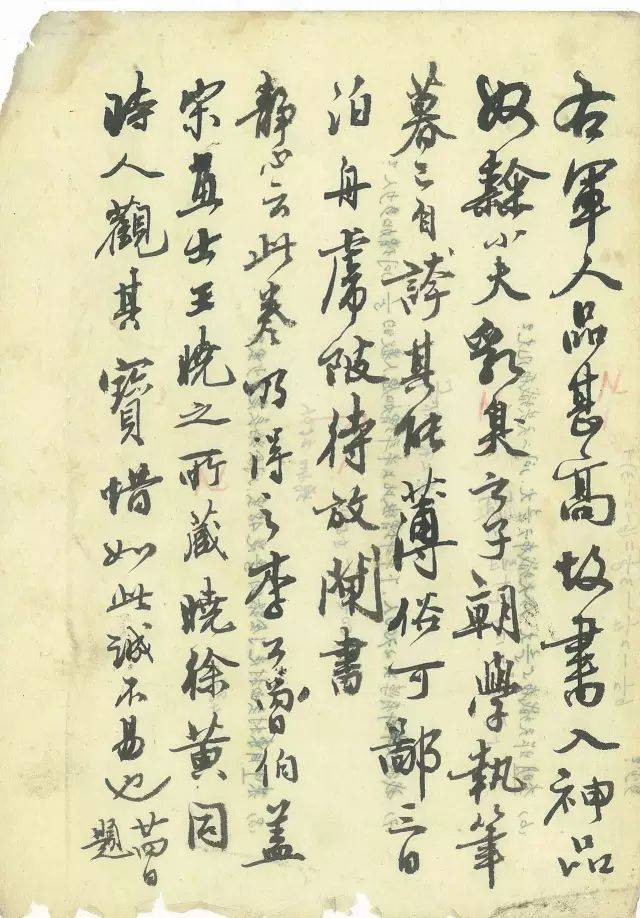 右軍人品甚高故書入神品
奴隸小夫乳臭之子朝學執筆
暮已自誇其能薄俗可鄙三日
泊舟虎陂待放閘書
靜心云此卷乃得之李公曾伯盖
宋畫士王曉之所藏曉徐黃同
時人觀其寶惜如此誠不易也廿四日
題